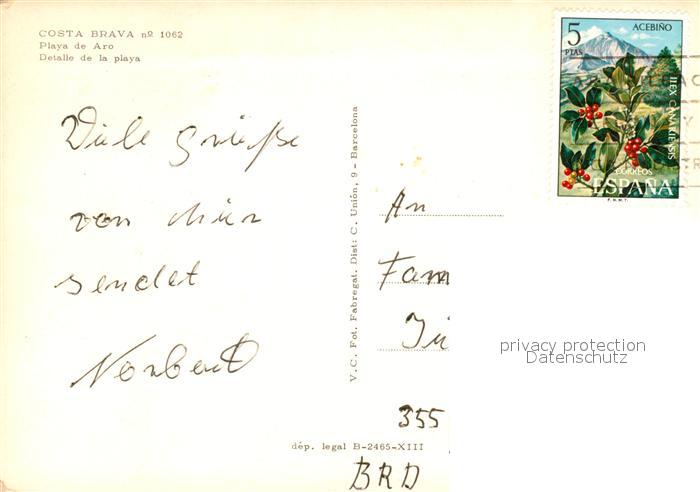 COSTA BRAVA nº 1062
Playa de Aro
Detalle de la playa
Viele Grüße
von hier
sendet
Norbert
V. C. Fot. Fabregat. Dist: C. Unión, 9 - Barcelona
dép. legal B-2465-XIII
5
PTAS
ACEBIÑO
ILEX CANARIENSIS
CORREOS
ESPAÑA
F.N.M.T.
An
Fam
355
BRD
privacy protection
Datenschutz